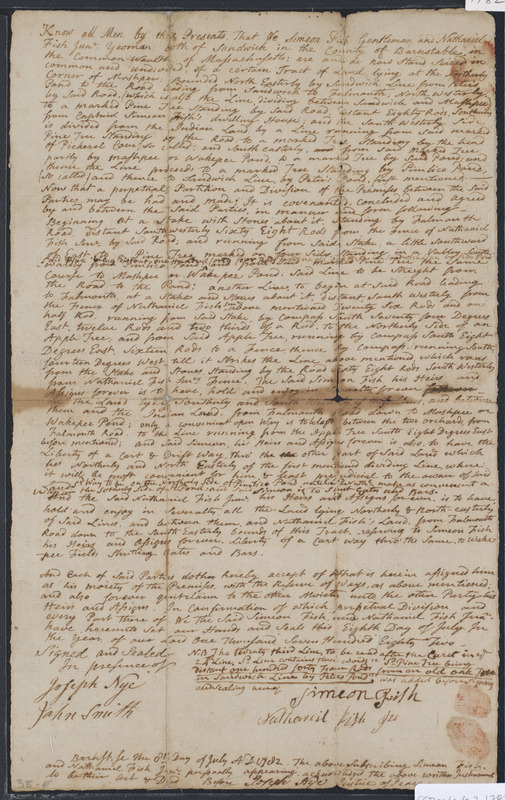 Know all Men by these Presents, That We Simeon Fish Gentleman, and Nathaniel
Fish Junr. Yeoman both of Sandwich in the County of Barnstable, in
the Common Wealth of Massachusetts: are and do now Stand Seized in
common and undivided, of a certain Tract of Land lying at the Northerly
Corner of Mashpee. Bounded North Easterly by Sandwich Line from Peters
Pond to the Road leading from Sandwich to Falmouth, North Westerly
by Said Road, which is also the Line dividing between Sandwich and Mashpee
to a marked Pine Tree Standing by Said Road, distant Eighty Rods, Southerly
from Captain Simeon Fish's dwelling House; and on the South Westerly Side
is divided from the Indian Land by a Line running from Said marked
Pine Tree Standing by Said Road to a marked Tree, Standing by the head
of Pickerel Cove, So called; and South easterly, and from Said marked Tree
partly by mashpee or Wakepee Pond, to a marked Tree by Said Pond; and
thence the Line proceeds to a marked Tree Standing by Pond
(So called) and thence by Sandwich Line, by Peters Pond, first mentioned.
Now that a perpetual Partition and Division of the Premises between the Said
Parties may be had and made; It is covenanted, concluded and agreed
by and between the Said Parties, in manner and form following.
Beginning at a Stake with Stones about it Standing by Falmouth
Road, distant South westerly Sixty Eight Rods from the Fence of Nathaniel
Fish Junr. by Said Road, and running from Said Stake, a little Southward
Course to Moshpee or Wakepee Pond. Said Line to be Straight from
the Road to the Pond: another Line, to begin at Said Road leading
to Falmouth, at a Stake and Stones about it, distant South Westerly from
the Fence of Nathaniel Fish before mentioned, Twenty Six Rods and one
half Rod, running from Said Stake, by Compass South Seventy four Degrees
East, twelve Rods and two thirds of a Rod, to the Northerly Side of an
Apple Tree, and from Said Apple Tree, running by Compass South Eight
Degrees East Sixteen Rods to a Fence, thence by Compass, running South,
fourteen Degrees West, till it Strikes the Line above mentioned, which runs
from the Stake and Stones Standing by the Road Sixty Eight Rods South Westerly
from Nathaniel Fish Junrs. Fence. The Said Simeon Fish his Heirs and
Assigns forever is to have, hold and enjoy in Severalty
the Land lying Southerly and and between
them and the Indian Land, from Falmouth Road down to Moshpee or
Wakepee Pond; only a convenient open Way is to be left between the two orchards, from
Falmouth Road to the Line running from the Apple Tree South Eight Degrees East
before mentioned; and Said Simeon, his Heirs and Assigns forever is also, to have the
Liberty of a Cart & Drift Way, thro' the other part of Said Land which
lies Northerly and North Easterly of the first mentioned dividing Line, where
it will be most convenient for him & least prejudicial to the owner of Said
Land.
And the Said Nathaniel Fish Junr. his Heirs and Assigns forever, is to have,
hold and enjoy in Severalty all the Land lying Northerly & North easterly
of Said Lines, and between them, and Nathaniel Fish's Land, from Falmouth
Road down to the South Easterly bounds of this Tract, reserving to Simeon Fish
his Heirs and Assigns forever, Liberty of a Cart way thro' the Same, to Wake-
pee Field, Shutting Gates and Bars.
And Each of Said Parties do thereby accept of What is herein assigned him
as his moiety of the Premises, with the Reserve of Ways, as above mentioned,
and also forever quitclaim to the other Moiety unto the other Party, his
Heirs and Assigns. In Confirmation of which perpetual Division and
every Part thereof We the Said Simeon Fish and Nathaniel Fish Junr.
have hereunto Set our Hands and Seal this Eighth Day of July in
the Year of our Lord One Thousand Seven Hundred Eighty Two.
Signed and Sealed
In presence of
Joseph Nye
John Smith
N.B. The twenty third Line, to be read after the Caret in ye
distant one hundred forty from Rods from an old oak Tree
in Sandwich Line by Peters Pond was added before Signing
and sealing
Simeon Fish
Nathaniel Fish Jur
Barnstable ss the 8th. Day of July A.D. 1782. The above Subscribing Simeon Fish
and Nathaniel Fish Junr. personally appearing acknowledged the above written Instrument
to be their Act & Deed Before Joseph Nye Justice of Peace